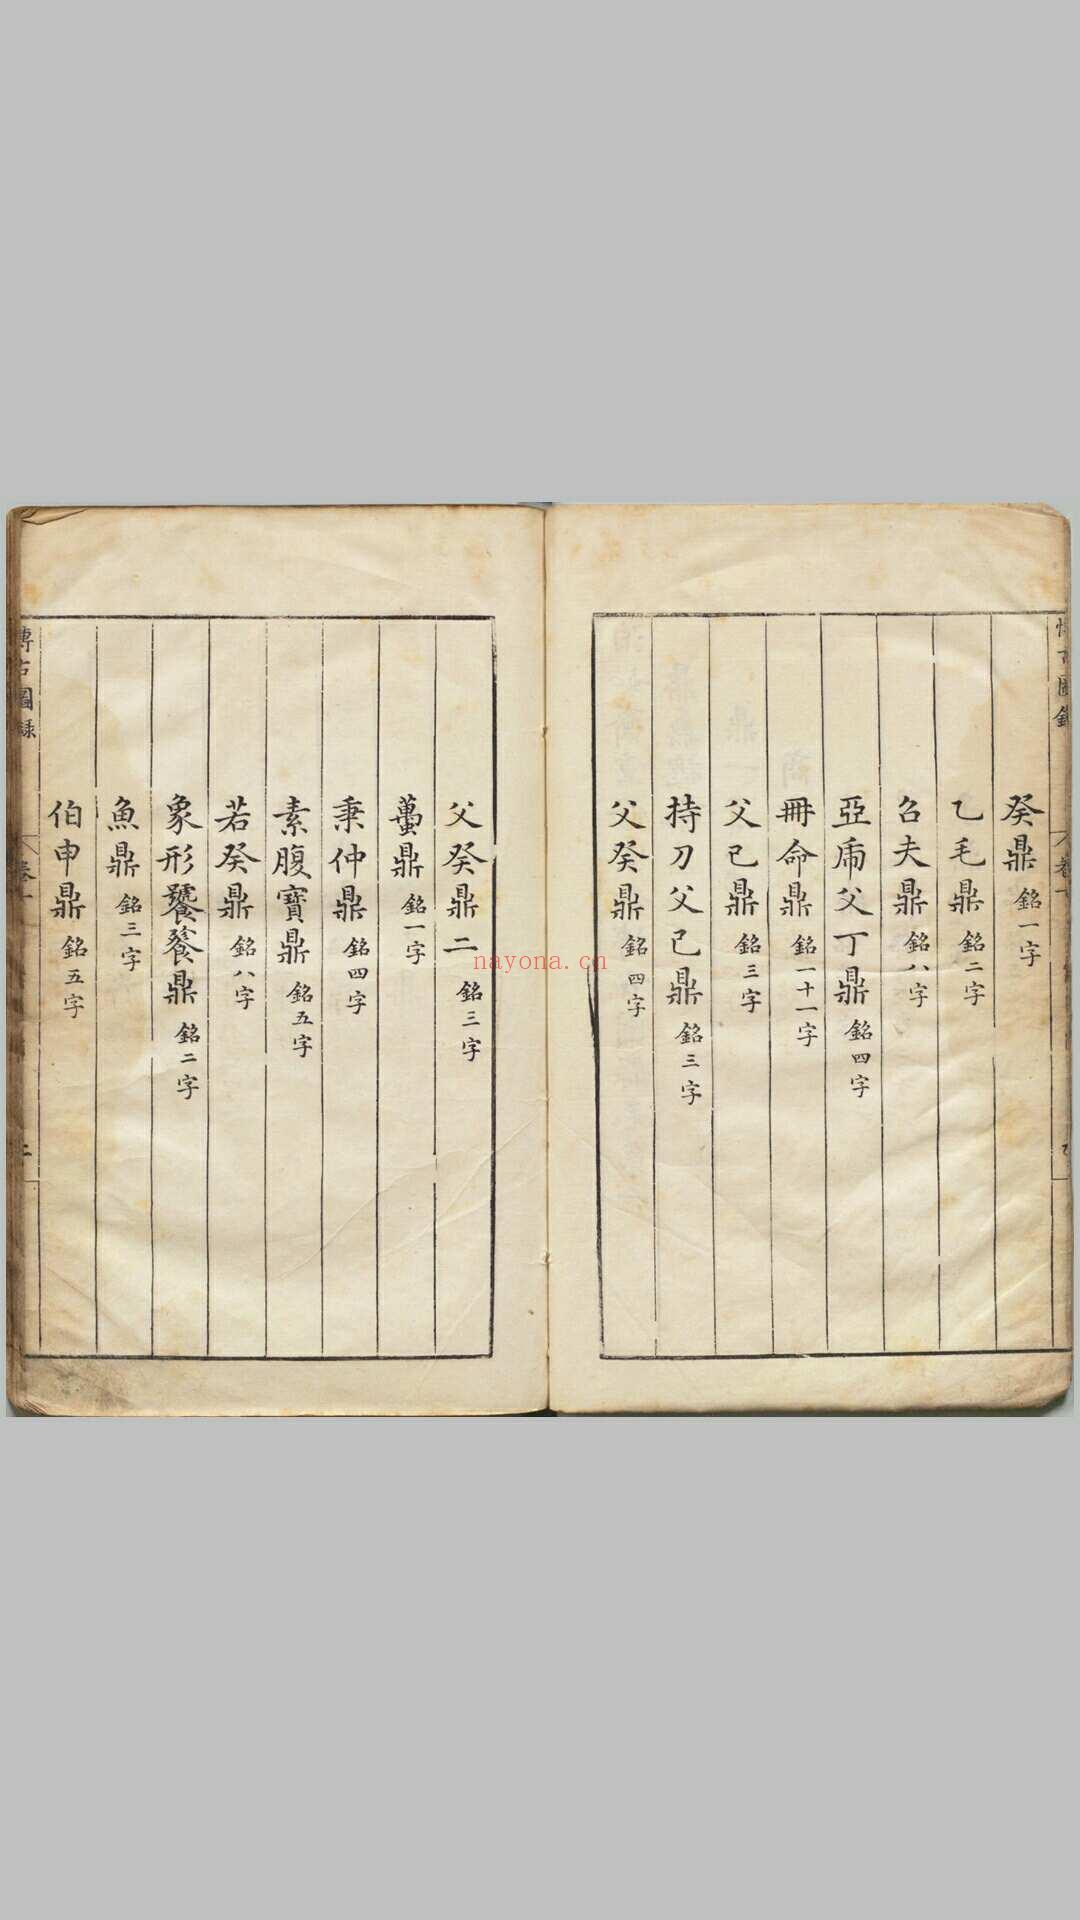 癸鼎 銘一字
乙毛鼎 銘二字
召夫鼎 銘八字
亞虎父丁鼎 銘四字
冊命鼎 銘一十一字
父己鼎 銘三字
持刀父己鼎 銘三字
父癸鼎 銘四字
父癸鼎二 銘三字
蠆鼎 銘一字
秉仲鼎 銘四字
素腹寶鼎 銘五字
若癸鼎 銘八字
象形饕餮鼎 銘二字
魚鼎 銘三字
伯申鼎 銘五字
博古圖錄 卷一 二
nayona.cn